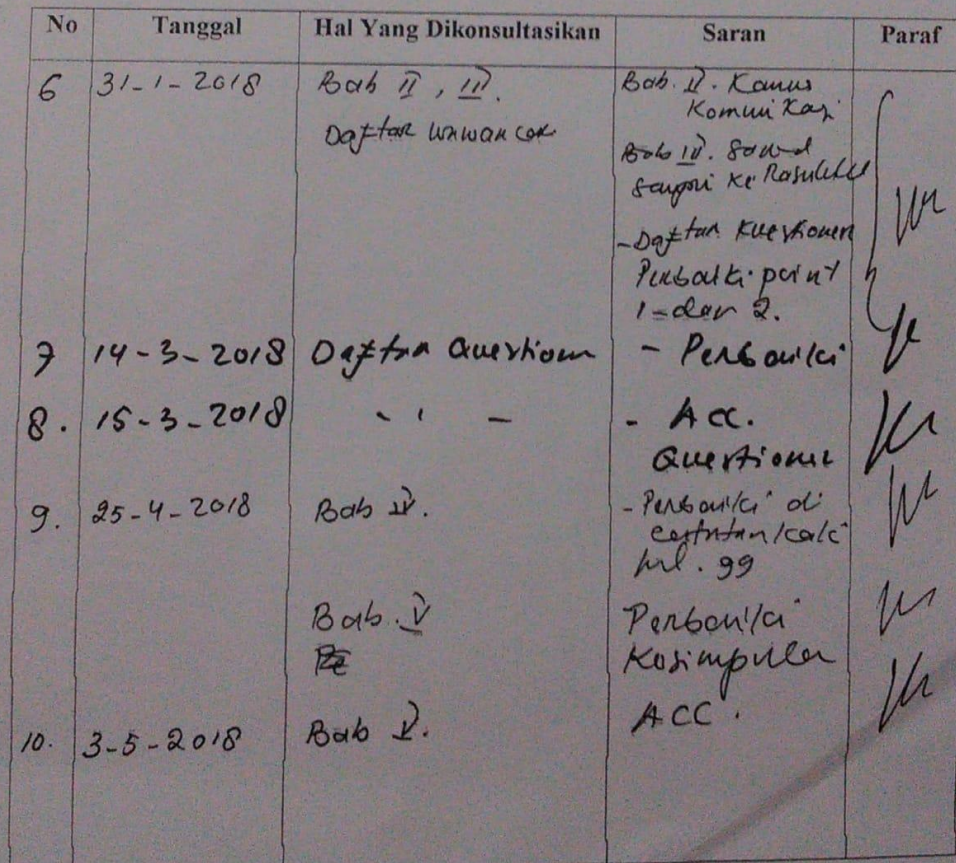 No Tanggal Hal Yang Dikonsultasikan Saran Paraf
6 31-1-2018 Bab II, III. Bab. II. Kamus
Komunikasi
Daftar wawancar
Bab III.
ke
- Daftar Kuestioner
Perbaiki point
1 dan 2.
7 14-3-2018 Daftar Questioner - Perbaiki
8. 15-3-2018 - ' - - ACC.
Questioner
9. 25-4-2018 Bab IV. - Perbaiki di
catatan kaki
hal. 99
Bab. V Perbaiki
Kesimpulan
10. 3-5-2018 Bab V. ACC.